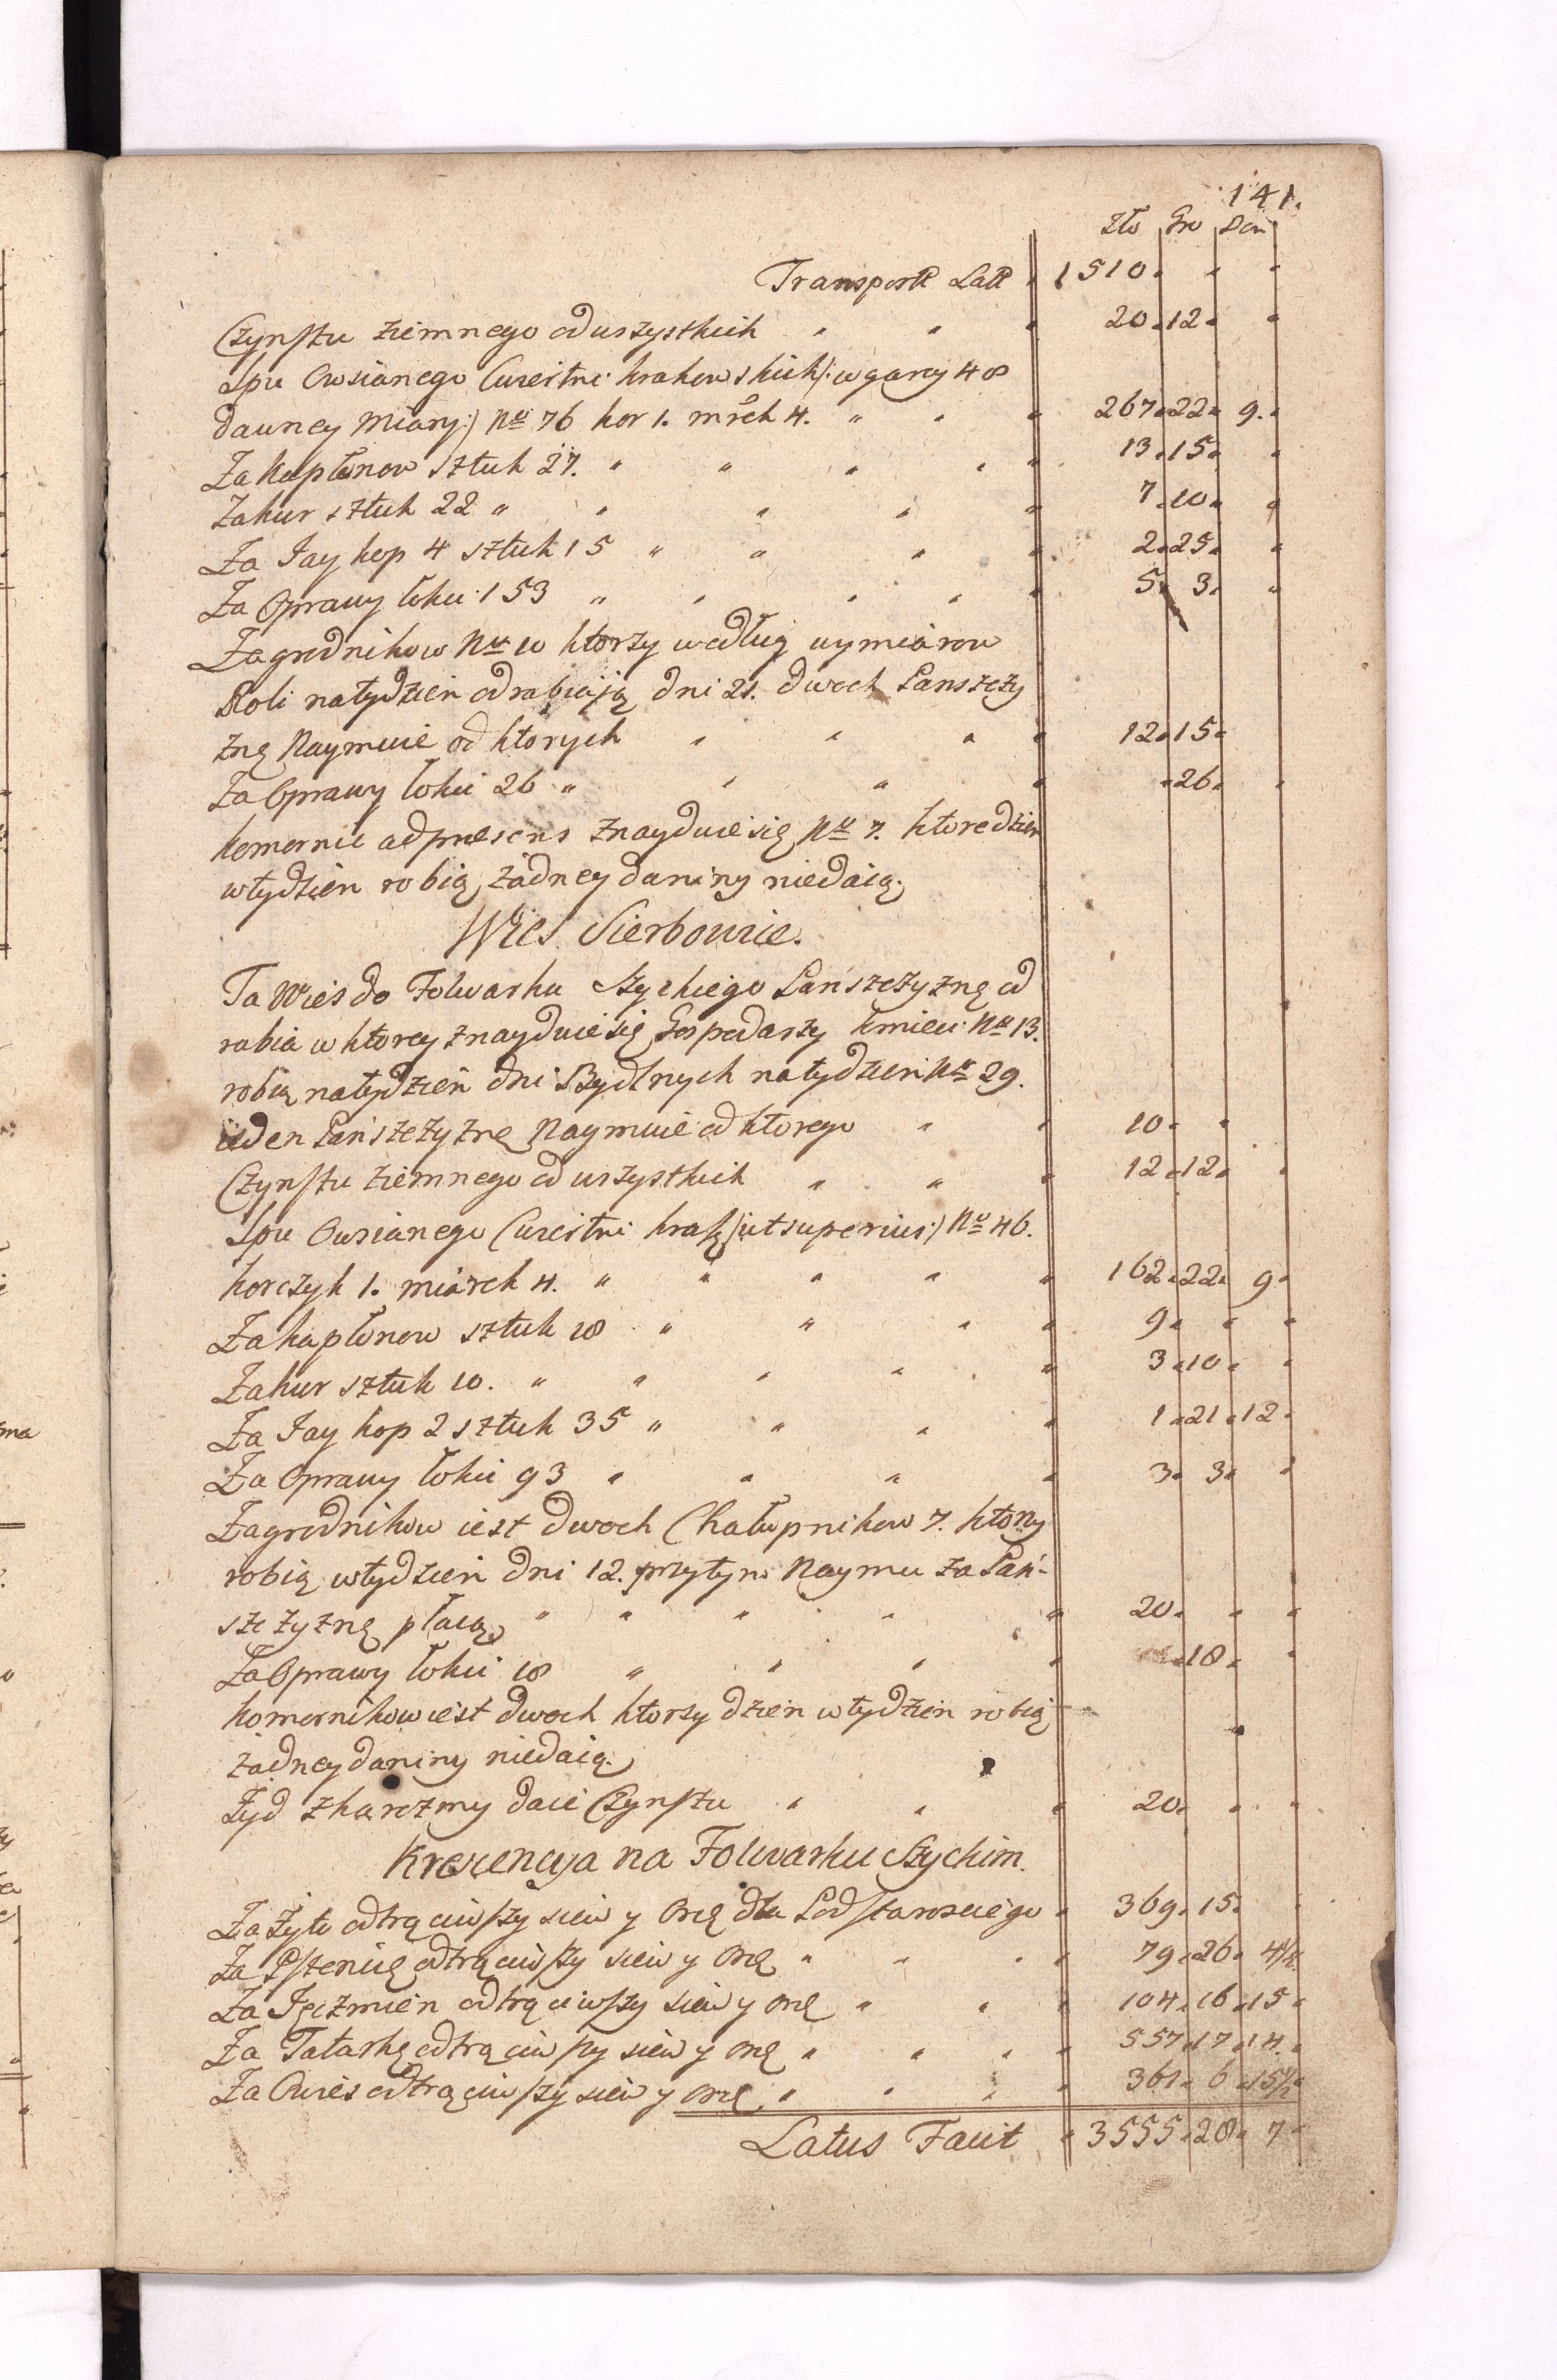 141.
Zło Gro Den
Transport Latt 1510 " "
Czynszu ziemnego od wszystkich " " " 20 12 "
Spu Owsianego Cwiertni krakowskich /: w garcy 48
dawney miary :/ No 76 kor 1. mrch 4. " " " 267 22 9.
Za kapłonow sztuk 27. " " " " " 13 15 "
Za kur sztuk 22 " " " " " 7 10 "
Za Jay kop 4 sztuk 15 " " " " 2 25 "
Za Oprawy łokci 153 " " " " " 5 3 "
Zagrodnikow No 10 ktorzy według wymiarow
Roli na tydzien odrabiaią dni 21. dwoch Panszczy
znę Naymuie od ktorych " " " " 12 15
Za Oprawy łokci 26 " " " " 26 "
komornic ad præsens znayduie się No 7. ktore dzien
w tydzien robią, żadney daniny niedaią.
Wies Sierbowice.
Ta Wies do Folwarku Szyckiego Panszczyznę od
rabia w ktorey znayduie się Gospodarzy kmieci No 13.
robią na tydzien dni Bydlnych na tydzien No 29.
ieden Panszczyznę Naymuie od ktorego " " 10 "
Czynszu ziemnego od wszystkich " " " 12 12 "
Spu Owsianego Cwiertni krak /: ut superius :/ No 46.
korczyk 1. miarek 4. " " " " " 162 22 9
Za kapłonow sztuk 18 " " " " 9 " "
Za kur sztuk 10. " " " " " 3 10 "
Za Jay kop 2 sztuk 35 " " " " 1 21 12
Za Oprawy łokci 93 " " " " 3 3 "
Zagrodnikow iest dwoch Chałupnikow 7. ktorzy
robią w tydzien dni 12. przytym Naymu za Pan-
szczyznę płacą " " " " " 20 " "
Za Oprawy łokci 18 " " " " 18 "
komornikow iest dwoch ktorzy dzien w tydzien robią
żadney daniny niedaią.
Żyd z karczmy daie Czynszu " " " 20 " "
Krescencya na Folwarku Szyckim.
Za Żyto odtrąciwszy siew y Ord dla Podstarosciego " 369 15
Za Pszenicę odtrąciwszy siew y Ord " " " " 79 26 4½
Za Jęczmien odtrąciwszy siew y ord " " " 104 16 15
Za Tatarkę odtrąciwszy siew y ord " " " " 557 17 14.
Za Owies odtrąciwszy siew y ord " " " " 361 6 15½
Latus Facit " 3555 28 7